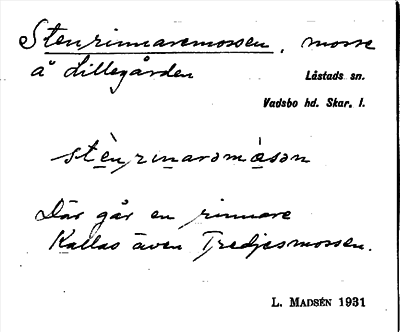 Stenrinnaremossen, mosse
å Lillegården
Låstads sn.
Vadsbo hd. Skar. l.
stèn,rinarəmåsən
Där går en rinnare
Kallas även Tredjesmossen.
L. MADSÉN 1931